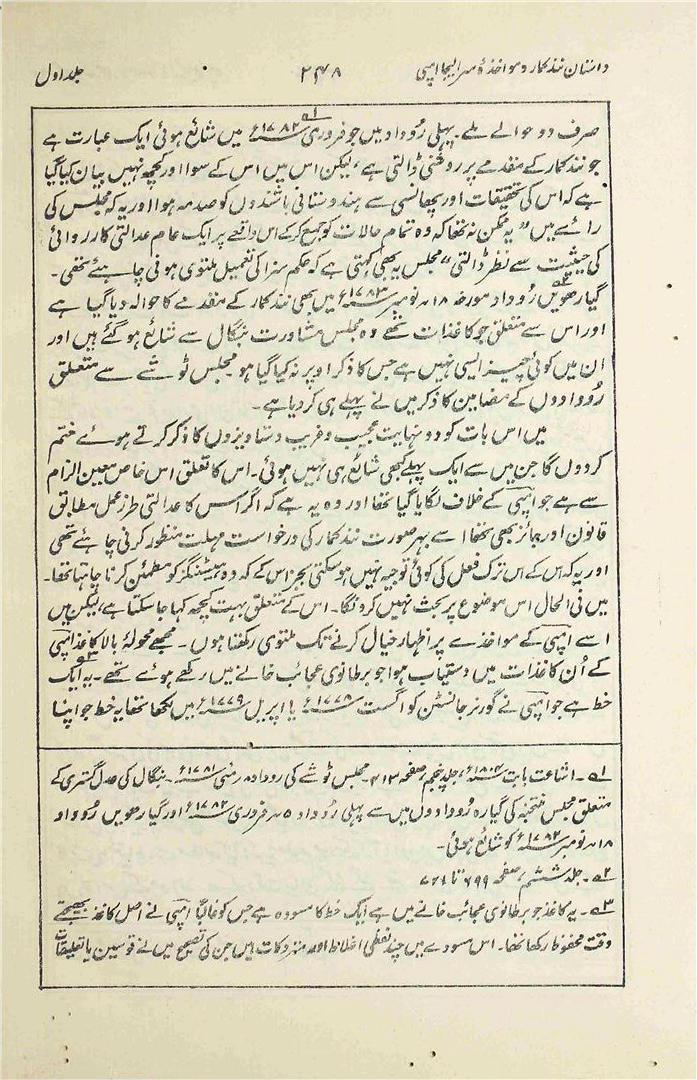 داستان نند کمار و مواخذۂ سر ایلیجا امپی ۲۴۸ جلد اول
صرف دو حوالے ملے۔ پہلی رُوداد میں جو فروری ۱۷۸۲ء؁۱ میں شائع ہوئی ایک عبارت ہے
جو نند کمار کے مقدمے پر روشنی ڈالتی ہے، لیکن اس میں اس کے سوا اور کچھ نہیں بیان کیا گیا
ہے کہ اس کی تحقیقات اور پھانسی سے ہندوستانی باشندوں کو صدمہ ہوا اور یہ کہ مجلس کی
رائے میں "یہ ممکن نہ تھا کہ وہ تمام حالات کو جمع کرکے اس واقعے پر ایک عام عدالتی کارروائی
کی حیثیت سے نظر ڈالتی" مجلس یہ بھی کہتی ہے کہ حکم سزا کی تعمیل ملتوی ہونی چاہئے تھی۔
گیارھویں؁۲ رُوداد مورخہ ۱۸ نومبر ۱۷۸۳ء میں بھی نند کمار کے مقدمے کا حوالہ دیا گیا ہے
اور اس سے متعلق جو کاغذات تھے وہ مجلس مشاورت بنگال سے شائع ہو گئے ہیں اور
ان میں کوئی چیز ایسی نہیں ہے جس کا ذکر اوپر نہ کیا گیا ہو۔ مجلس ٹوشے سے متعلق
رُودادوں کے مضامین کا ذکر میں نے پہلے ہی کردیا ہے۔
میں اس بات کو دو نہایت عجیب و غریب دستاویزوں کا ذکر کرتے ہوئے ختم
کردوں گا جن میں سے ایک پہلے کبھی شائع ہی نہیں ہوئی۔ اس کا تعلق اس خاص معین الزام
سے ہے جو امپی کے خلاف لگایا گیا تھا اور وہ یہ ہے کہ اگر اس کا عدالتی طرز عمل مطابق
قانون اور جائز بھی تھا اسے بہر صورت نند کمار کی درخواست مہلت منظور کرنی چاہئے تھی
اور یہ کہ اس کے اس ترک فعل کی کوئی توجیہ نہیں ہوسکتی بجز اس کے کہ وہ ہیسٹنگز کو مطمئن کرنا چاہتا تھا۔
میں فی الحال اس موضوع پر بحث نہیں کرونگا۔ اس کے متعلق بہت کچھ کہا جاسکتا ہے، لیکن میں
اسے امپی کے مواخذے پر اظہار خیال کرنے تک ملتوی رکھتا ہوں۔ مجھے محولۂ بالا کاغذ امپی
کے اُن کاغذات میں دستیاب ہوا جو برطانوی عجائب خانے میں رکھے ہوئے تھے۔؁۳ یہ ایک
خط ہے جو امپی نے گورنر جانسٹن کو اگست ۱۷۷۸ء یا اپریل ۱۷۷۹ء میں لکھا تھا یہ خط جو اپنا
؁۱۔ اشاعت بابت ۱۸۰۴ء، جلد پنجم، صفحہ ۴۱۳۔ مجلس ٹوشے کی روداد ۸ مئی ۱۷۸۱ء۔ بنگال کی عدل گستری کے
متعلق مجلس منتخبہ کی گیارہ رُودادوں میں سے پہلی رُوداد ۵ فروری ۱۷۸۲ء اور گیارھویں رُوداد
۱۸ نومبر ۱۷۸۳ء کو شائع ہوئی۔
؁۲۔ جلد ششم، صفحہ ۶۹۹ تا ۷۶۱
؁۳۔ یہ کاغذ جو برطانوی عجائب خانے میں ہے ایک خط کا مسودہ ہے جس کو غالباً امپی نے اصل کاغذ بھیجتے
وقت محفوظ رکھا تھا۔ اس مسودے میں چند لفظی اغلاط اور متروکات ہیں جن کی تصحیح میں نے قوسین یا تعلیقات